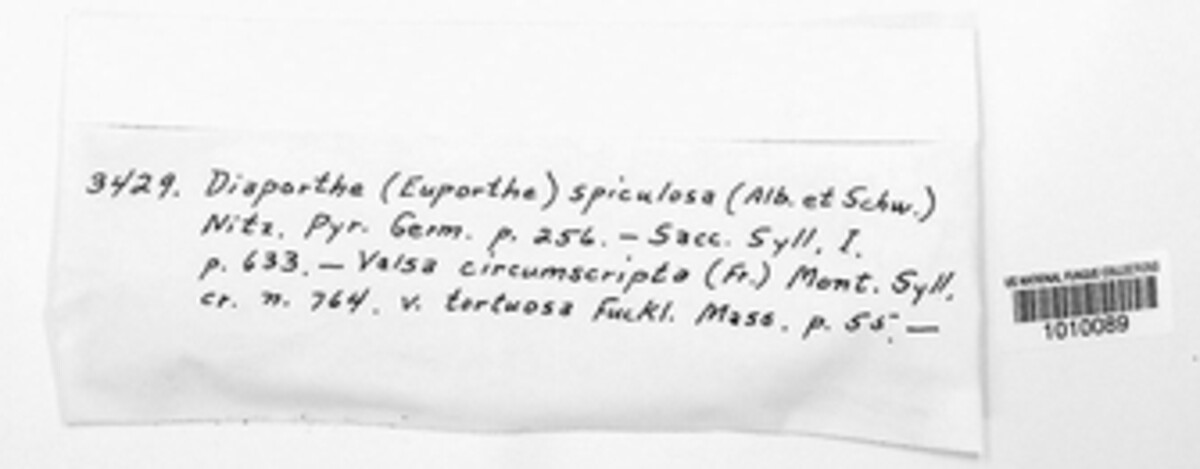 3429. Diaporthe (Euporthe) spiculosa (Alb. et Schw.)
Nitz. Pyr. Germ. p. 256. — Sacc. Syll. I.
p. 633. — Valsa circumscripta (Fr.) Mont. Syll.
cr. n. 764. v. tortuosa Fuckl. Mass. p. 55. —
US NATIONAL FUNGUS COLLECTIONS
1010089